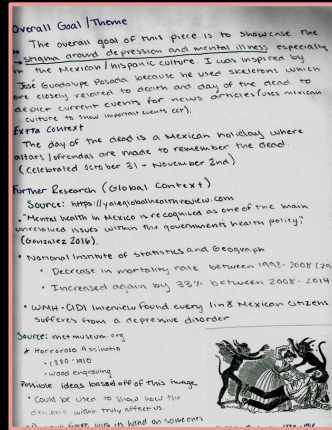 Overall Goal / Theme
The overall goal of this piece is to showcase the
stigma around depression and mental illness especially
in the Mexican/hispanic culture. I was inspired by
José Guadalupe Posada because he used skeletons which
are closely related to death and day of the dead to
depict current events for news articles (uses mexican
culture to show important events ect).
Extra Context
The day of the dead is a Mexican holiday where
altars / ofrendas are made to remember the dead.
(celebrated october 31 - November 2nd)
Further Research (Global Context)
Source: https://yaleglobalhealthreview.com
• "Mental health in Mexico is recognized as one of the main
unresolved issues within the government's health policy,"
(Gonzalez 2016).
• National Institute of Statistics and Geograph
• Decrease in mortality rate between 1998-2008
• Increased again by 33% between 2008-2014
• WMH-CIDI Interview found every 1 in 8 Mexican Citizens
suffers from a depressive disorder
Source: metmuseum.org
Horroroso Asesinato
• 1880-1910
• wood engraving
Possible ideas based off of this image
• Could be used to show how the
demons within truly affect us.
with its hand on someones